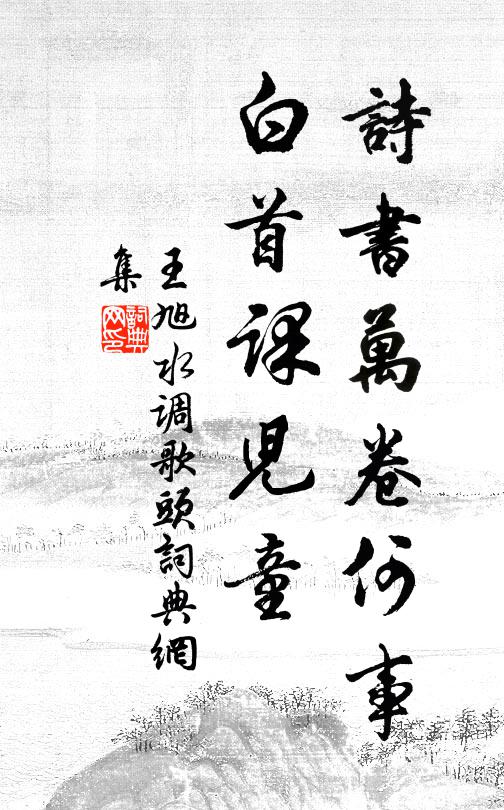 詩書萬卷何事
白首課兒童
王旭水调歌頭詞典網
集
詞典
网印